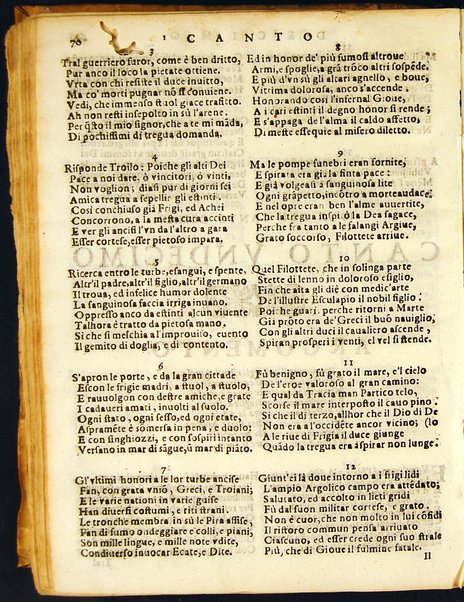 70 CANTO
3
Tra'l guerriero furor, come è ben dritto,
Pur anco il loco la pietate ottiene.
Vrta con chi resiste il duce inuitto,
Ma co' morti pugnar nō si conuiene.
Vedi, che immenso stuol giace trafitto.
Ah non resti insepolto in sù l'arene.
Per q̄sto il mio signor, che a te mi māda,
Di pochissimi dì tregua domanda.
4
Risponde Troilo; Poiche gli alti Dei
Pace a noi dare, ò vincitori, ò vinti,
Non voglion; diasi pur di giorni sei
Amica tregua a sepellir gli estinti.
Così conchiuso già Frigi, ed Achei
Concorrono, a la mesta cura accinti
E ver gli ancisi l'vn da l'altro a gara
Esser cortese, esser pietoso impara,
5
Ricerca entro le turbe, esangui, e spente,
Altr'il padre, altr'il figlio, altr'il germano
Il troua, ed infelice humor dolente
La sanguinosa faccia irriga inuano,
Oppresso anco da estinti alcun viuente
Talhora è tratto da pietosa mano,
Sì che si meschia al improuiso, cuento
Il gemito di doglia, e di contento.
6
S'apron le porte, e da la gran cittade
Escon le frigie madri, a stuol, a stuolo,
E rauuolgon con destre amiche, e grate
I cadaueri amati, inuolti al suolo.
Ogni stato, ogni sesso, ed ogni etate,
Aspramēte è sōmersa in pena, e duolo:
E con singhiozzi, e con sospiri intanto
Versano in mar di sāgue, sù mar di piāto.
7
Gl'vltimi honori a le lor turbe ancise
Fan, con grata vniō, Greci, e Troiani;
E le varie nationi in varie guise
Han diuersi costumi, e riti strani.
Le tronche membra in sù le Pira assise,
Fan di fumo ondeggiare e colli, e piani,
Son mille lingue, e mille note vdite,
Condiuerso inuocar Ecate, e Dite.
8
Ed in honor de' più famosi altroue
Armi, e spoglie, a grā trōco altri sospēde.
E più d'vn sù gli altari agnello, e boue,
Vittima dolorosa, anco s'accende.
Honorando così l'infernal Gioue,
A i cari estinti il degno honor si rende;
E s'appaga de l'alma il caldo affetto,
Di meste essequie al misero diletto.
9
Ma le pompe funebri eran fornite;
E spirata era già la finta pace:
E già volgeasi a sanguinosa lite
Ogni grāpetto, incōtro a morte audace.
E nel opre eran ben l'alme auuertite,
Che la tregua inspirò la Dea sagace,
Perche fra tanto a le falangi Argiue,
Grato soccorso, Filottete arriue.
10
Quel Filottete, che in solinga parte
Stette di lenno in doloroso esiglio,
Fin che alta gli diè con medic'arte
De l'illustre Esculapio il nobil figlio.
Poi he guarì. perche ritorni a Marte
Già prōto era de' Greci il buō nauiglio,
Con gli altri duci il caualiero ascende,
Spiran prosperi i venti, el vel si stende.
11
Fù benigno, fù grato il mare, e'l cielo
De l'eroe valoroso al gran camino:
E qual da Tracia man Partico telo,
Scorse il mare interposto il cauo pino.
Sì che il dì terzo, allhor che il Dio di De
Non era a l'occidēte ancor vicino; (lo
A le riue di Frigia il duce giunge
Quādo la tregua era à spirar non lunge.
12
Giunt' ei là doue intorno a i frigi lidi
L'ampio Argolico campo era attēdato;
Salutato, ed accolto in lieti gridi
Fù dal suon militar cortese, e grato.
Non è cuor, che non molto in lui cōfidi
Il ristoro commun pensa arriuato
Ciascuno, ed esser crede ogni suo strale
Più, che di Gioue il fulmine fatale.
Il